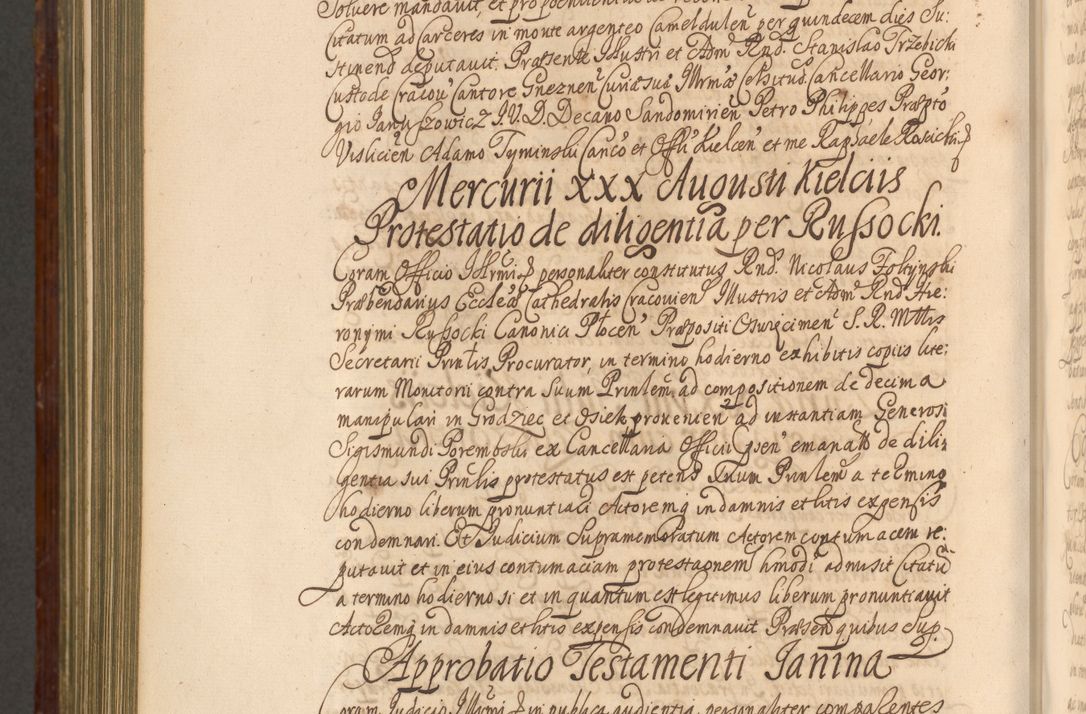 Solvere mandavit, et pro poenitentia
Citatum ad Carceres in monte argenteo Cameldulen̄ per quindecem dies Su:
stinend deputavit. Præsente Illustri et Adm̄ Rnd. Stanislao Trzebicki
Custode Cracoū Cantore Gneznen̄ Curiæ suæ Illrmæ Celsitud. Cancellario Geor:
gio Januszowicz J.V.D. Decano Sandomirien̄ Petro Philippes Præpto
Vislicien̄ Adamo Tyminski Canco et Offli Kielcen̄ et me Raphaele Rosicki
Mercurii XXX Augusti Kielciis
Protestatio de diligentia per Russocki.
Coram Officio Illrmi personaliter constitutus Rnd. Nicolaus Foltynski
Præbendarius Ecclæ Cathedralis Cracovien̄ Illustris et Adm̄ Rnd. Hie:
ronymi Russocki Canonici Plocen̄ Præpositi Osviecimen̄ S. R. Mttis
Secretarii Prinlis Procurator, in termino hodierno exhibitis copiis lite:
rarum Monitorii contra suum Prinlem, ad compositionem de decima
manipulari in Grodziec et Osiek provenien̄ ad instantiam Generosi
Sigismundi Porembski ex Cancellaria Officii psen̄ emanatis de dili:
gentia sui Prinlis protestatus est petens suum Prinlem a termino
hodierno liberum pronuntiari Actoremq in damnis et litis expensis
condemnari. Et Judicium Supramemoratum Actorem contumacem re:
putavit et in eius contumaciam protestaonem hmodi admisit Citatū
a termino hodierno si et in quantum est legitimus liberum pronuntiavit
Actoremq in damnis et litis expensis condemnavit Præsen̄ quibus sup.
Approbatio Testamenti Janina
Coram Judicio Illrmi in publica audientia personaliter comparentes